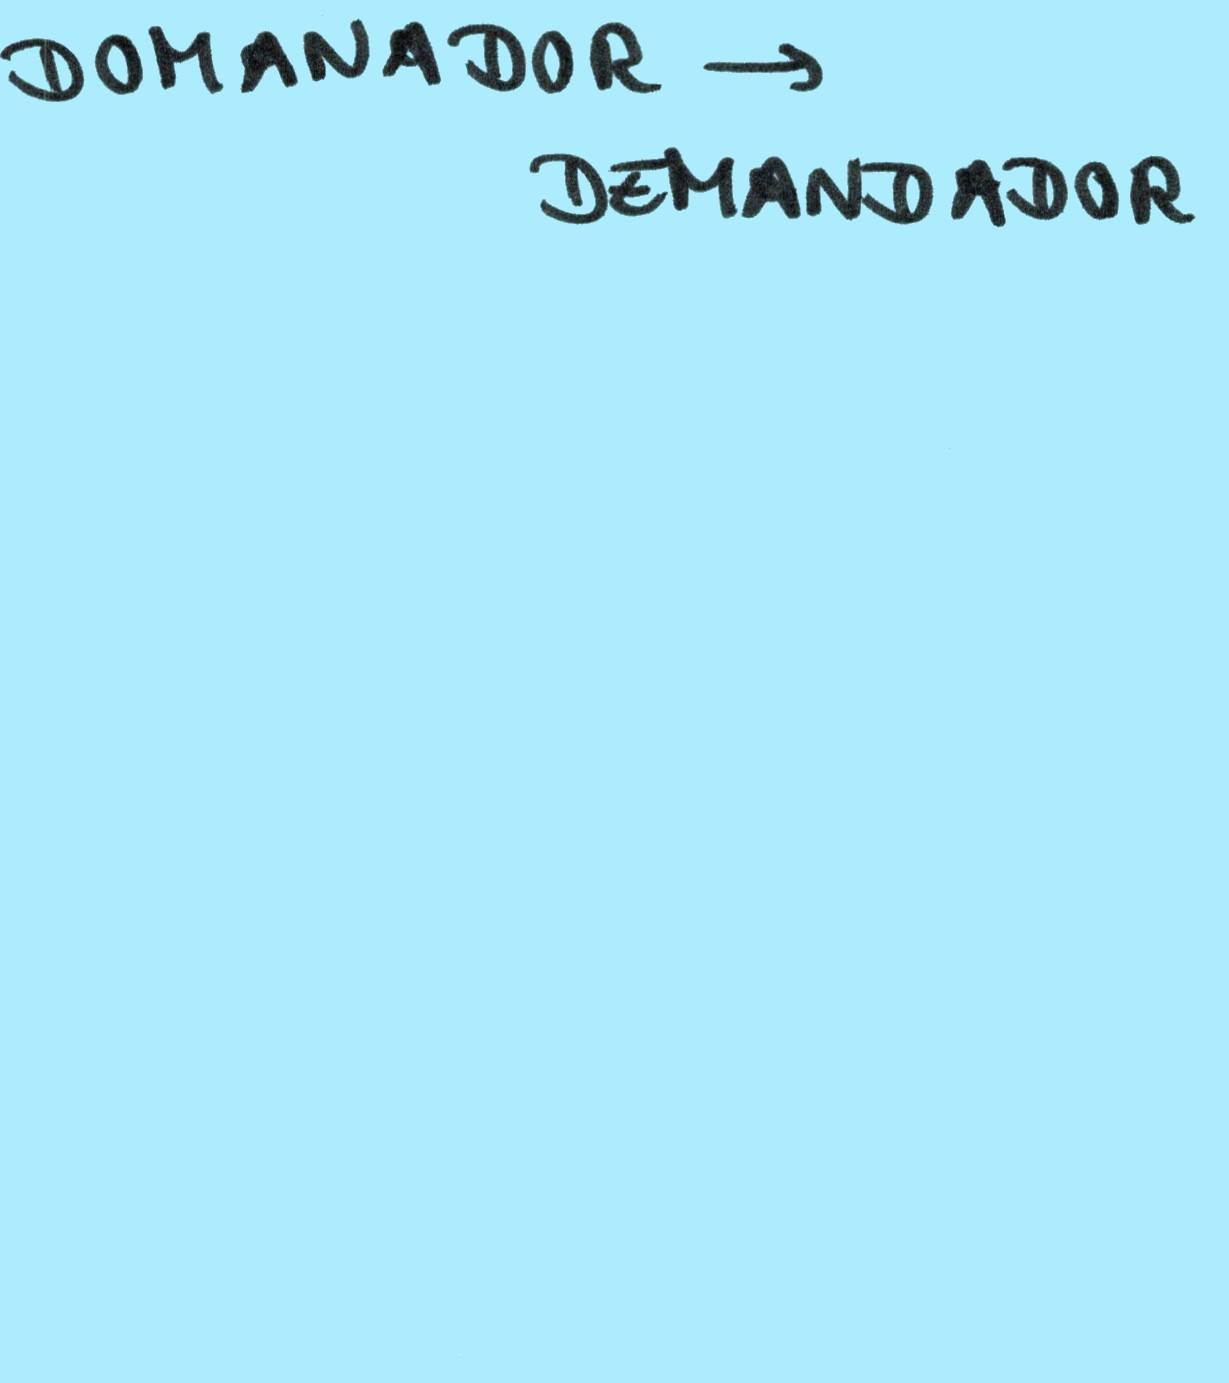 DOMANADOR →
DEMANDADOR